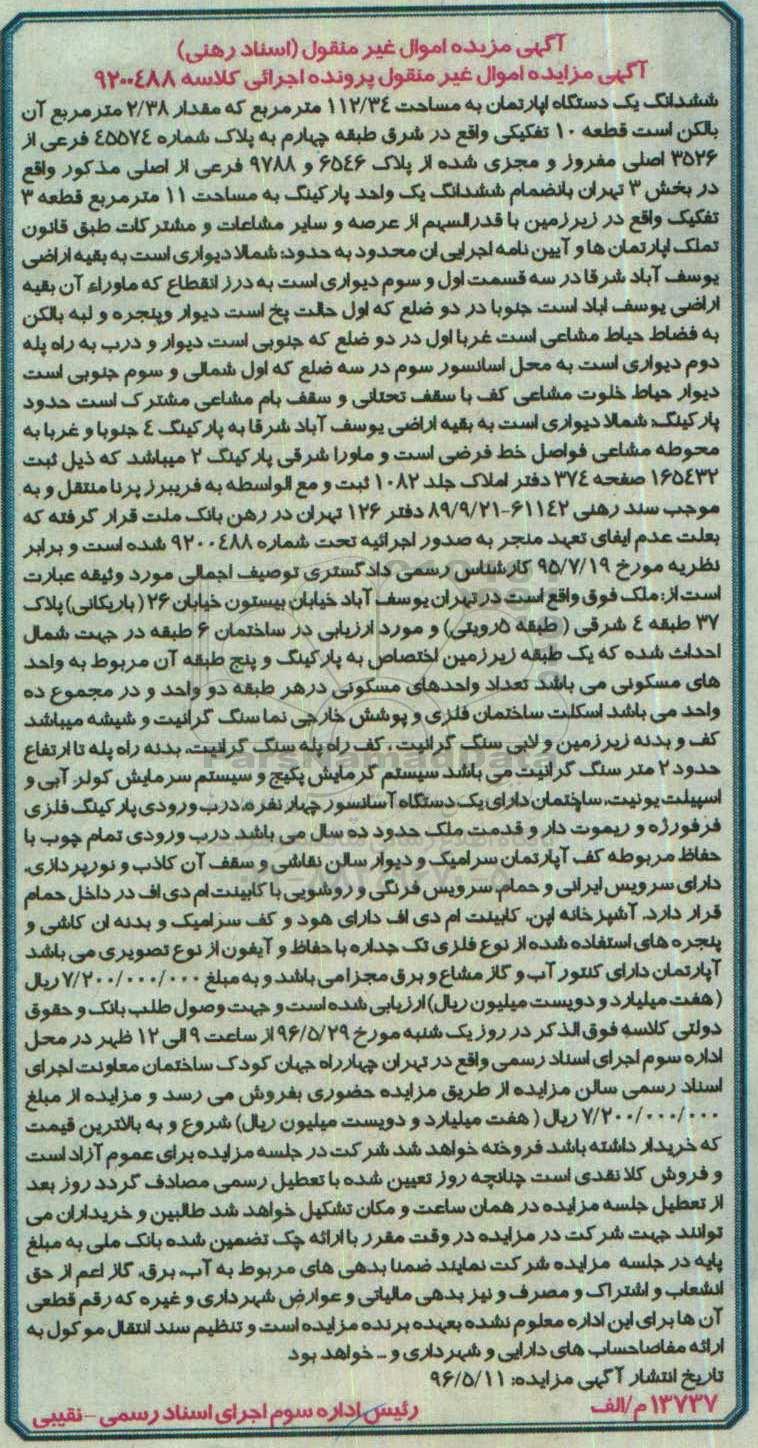 آگهی مزیده اموال غیر منقول (اسناد رهنی)
آگهی مزایده اموال غیر منقول پرونده اجرائی کلاسه ۹۲۰۰۴۸۸
ششدانگ یک دستگاه اپارتمان به مساحت ۱۱۲/۳۴ مترمربع که مقدار ۲/۳۸ مترمربع آن
بالکن است قطعه ۱۰ تفکیکی واقع در شرق طبقه چهارم به پلاک شماره ۴۵۵۷۴ فرعی از
۳۵۲۶ اصلی مفروز و مجزی شده از پلاک ۶۵۴۶ و ۹۷۸۸ فرعی از اصلی مذکور واقع
در بخش ۳ تهران بانضمام ششدانگ یک واحد پارکینگ به مساحت ۱۱ مترمربع قطعه ۳
تفکیک واقع در زیرزمین با قدرالسهم از عرصه و سایر مشاعات و مشترکات طبق قانون
تملک اپارتمان ها و آیین نامه اجرایی ان محدود به حدود: شمالا دیواری است به بقیه اراضی
یوسف آباد شرقا در سه قسمت اول و سوم دیواری است به درز انقطاع که ماوراء آن بقیه
اراضی یوسف اباد است جنوبا در دو ضلع که اول حالت پخ است دیوار وپنجره و لبه بالکن
به فضاط حیاط مشاعی است غربا اول در دو ضلع که جنوبی است دیوار و درب به راه پله
دوم دیواری است به محل اسانسور سوم در سه ضلع که اول شمالی و سوم جنوبی است
دیوار حیاط خلوت مشاعی کف با سقف تحتانی و سقف بام مشاعی مشترک است حدود
پارکینگ: شمالا دیواری است به بقیه اراضی یوسف آباد شرقا به پارکینگ ۴ جنوبا و غربا به
محوطه مشاعی فواصل خط فرضی است و ماورا شرقی پارکینگ ۲ میباشد که ذیل ثبت
۱۶۵۴۳۲ صفحه ۳۷۴ دفتر املاک جلد ۱۰۸۲ ثبت و مع الواسطه به فریبرز پرنا منتقل و به
موجب سند رهنی ۶۱۱۴۲-۸۹/۹/۲۱ دفتر ۱۲۶ تهران در رهن بانک ملت قرار گرفته که
بعلت عدم ایفای تعهد منجر به صدور اجرائیه تحت شماره ۹۲۰۰۴۸۸ شده است و برابر
نظریه مورخ ۹۵/۷/۱۹ کارشناس رسمی دادگستری توصیف اجمالی مورد وثیقه عبارت
است از: ملک فوق واقع است در تهران یوسف آباد خیابان بیستون خیابان ۲۶ (باریکانی) پلاک
۳۷ طبقه ۴ شرقی (طبقه ۵رویتی) و مورد ارزیابی در ساختمان ۶ طبقه در جهت شمال
احداث شده که یک طبقه زیرزمین اختصاص به پارکینگ و پنج طبقه آن مربوط به واحد
های مسکونی می باشد تعداد واحدهای مسکونی درهر طبقه دو واحد و در مجموع ده
واحد می باشد اسکلت ساختمان فلزی و پوشش خارجی نما سنگ گرانیت و شیشه میباشد
کف و بدنه زیرزمین و لابی سنگ گرانیت ، کف راه پله سنگ گرانیت، بدنه راه پله تا ارتفاع
حدود ۲ متر سنگ گرانیت می باشد سیستم گرمایش پکیج و سیستم سرمایش کولر آبی و
اسپیلت یونیت، ساختمان دارای یک دستگاه آسانسور چهار نفره، درب ورودی پارکینگ فلزی
فرفورژه و ریموت دار و قدمت ملک حدود ده سال می باشد درب ورودی تمام چوب با
حفاظ مربوطه کف آپارتمان سرامیک و دیوار سالن نقاشی و سقف آن کاذب و نورپردازی،
دارای سرویس ایرانی و حمام، سرویس فرنگی و روشویی با کابینت ام دی اف در داخل حمام
قرار دارد. آشپزخانه اپن، کابینت ام دی اف دارای هود و کف سرامیک و بدنه ان کاشی و
پنجره های استفاده شده از نوع فلزی تک جداره با حفاظ و آیفون از نوع تصویری می باشد
آپارتمان دارای کنتور آب و گاز مشاع و برق مجزا می باشد و به مبلغ ۷/۲۰۰/۰۰۰/۰۰۰ ریال
(هفت میلیارد و دویست میلیون ریال) ارزیابی شده است و جهت وصول طلب بانک و حقوق
دولتی کلاسه فوق الذکر در روز یک شنبه مورخ ۹۶/۵/۲۹ از ساعت ۹ الی ۱۲ ظهر در محل
اداره سوم اجرای اسناد رسمی واقع در تهران چهارراه جهان کودک ساختمان معاونت اجرای
اسناد رسمی سالن مزایده از طریق مزایده حضوری بفروش می رسد و مزایده از مبلغ
۷/۲۰۰/۰۰۰/۰۰۰ ریال (هفت میلیارد و دویست میلیون ریال) شروع و به بالاترین قیمت
که خریدار داشته باشد فروخته خواهد شد شرکت در جلسه مزایده برای عموم آزاد است
و فروش کلا نقدی است چنانچه روز تعیین شده با تعطیل رسمی مصادف گردد روز بعد
از تعطیل جلسه مزایده در همان ساعت و مکان تشکیل خواهد شد طالبین و خریداران می
توانند جهت شرکت در مزایده در وقت مقرر با ارائه چک تضمین شده بانک ملی به مبلغ
پایه در جلسه مزایده شرکت نمایند ضمنا بدهی های مربوط به آب، برق، گاز اعم از حق
انشعاب و اشتراک و مصرف و نیز بدهی مالیاتی و عوارض شهرداری و غیره که رقم قطعی
آن ها برای این اداره معلوم نشده بعهده برنده مزایده است و تنظیم سند انتقال موکول به
ارائه مفاصاحساب های دارایی و شهرداری و ... خواهد بود
تاریخ انتشار آگهی مزایده: ۹۶/۵/۱۱
۱۳۷۳۷ م/الف رئیس اداره سوم اجرای اسناد رسمی - نقیبی
ParsNamadData